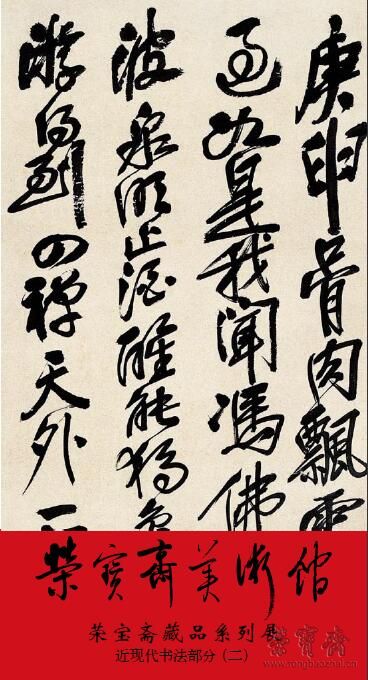 庚申骨肉飄
過如是我聞馮佛
波泉明止酒醒能獨
游得到四禪天外
榮寶齋美術館
荣宝斋藏品系列展
近现代书法部分（二）
榮寶齋
www.rongbaozhai.cn